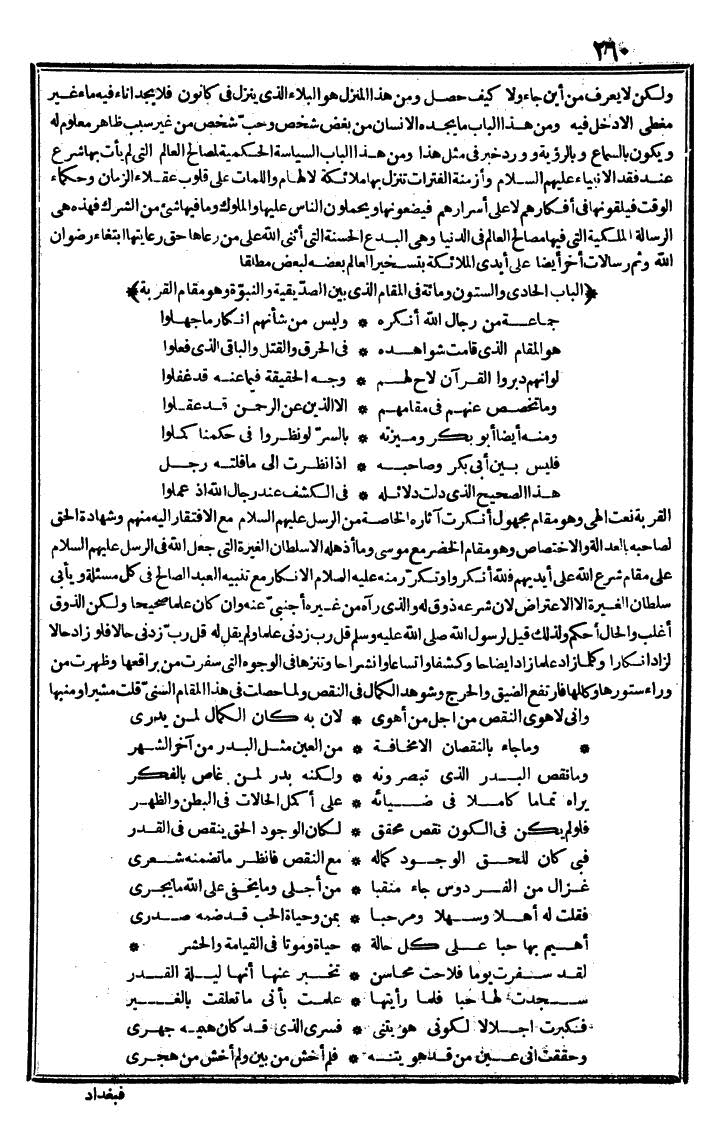 ٢٦٠
ولكن لا يعرف من أين جاء ولا كيف حصل ومن هذا المنزل هو البلاء الذي ينزل في كانون فلا يجد اناء فيه ماء غير
مغطى الا دخل فيه ومن هذا الباب ما يجده الانسان من بغض شخص وحبّ شخص من غير سبب ظاهر معلوم له
ويكون بالسماع وبالرؤية وورد خبر في مثل هذا ومن هذا الباب السياسة الحكمية لمصالح العالم التي لم يأت بها شرع
عند فقد الانبياء عليهم السلام وأزمنة الفترات تنزل بها ملائكة لالهام واللمات على قلوب عقلاء الزمان وحكماء
الوقت فيلقونها في أفكارهم لا على أسرارهم فيضعونها ويحملون الناس عليها والملوك وما فيها شئ من الشرك فهذه هي
الرسالة الملكية التي فيها مصالح العالم في الدنيا وهي البدع الحسنة التي أثنى الله على من رعاها حق رعايتها ابتغاء رضوان
الله وثم رسالات أخر أيضا على أيدي الملائكة بتسخير العالم بعضه لبعض مطلقا
﴿الباب الحادي والستون ومائة في المقام الذي بين الصدّيقية والنبوّة وهو مقام القربة﴾
جماعة من رجال الله أنكره * وليس من شأنهم انكار ما جهلوا
هو المقام الذي قامت شواهده * في الخرق والقتل والباقي الذي فعلوا
لو انهم دبروا القرآن لاح لهم * وجه الحقيقة فيما عنه قد غفلوا
وما تخصص عنهم في مقامهم * الا الذين عن الرحمن قد عقلوا
ومنه أيضا أبو بكر وميزته * بالسرّ لو نظروا في حكمنا كملوا
فليس بين أبي بكر وصاحبه * اذا نظرت الى ما قلته رجل
هذا الصحيح الذي دلت دلائله * في الكشف عند رجال الله اذ عملوا
القربة نعت الهي وهو مقام مجهول أنكرت آثاره الخاصة من الرسل عليهم السلام مع الافتقار اليه منهم وشهادة الحق
لصاحبه بالعدالة والاختصاص وهو مقام الخضر مع موسى وما أذهله الا سلطان الغيرة التي جعل الله في الرسل عليهم السلام
على مقام شرع الله على أيديهم فلله أنكروا وتكرّر منه عليه السلام الانكار مع تنبيه العبد الصالح في كل مسئلة ويأبى
سلطان الغيرة الا الاعتراض لان شرعه ذوق له والذي رآه من غيره أجنبيّ عنه وان كان علما صحيحا ولكن الذوق
أغلب والحال أحكم ولذلك قيل لرسول الله صلى الله عليه وسلم قل رب زدني علما ولم يقل له قل ربّ زدني حالا فلو زاد حالا
لزاد انكارا وكلما زاد علما زاد ايضاحا وكشفا واتساعا وانشراحا وتنزها في الوجوه التي سفرت من براقعها وظهرت من
وراء ستورها وكالها فارتفع الضيق والحرج وشوهد الكمال في النقص ولما حصلت في هذا المقام السنيّ قلت مشيرا ومنبها
واني لأهوى النقص من أجل من أهوى * لان به كان الكمال لمن يدرى
* وما جاء بالنقصان الا مخافة * من العين مثل البدر من آخر الشهر
وما نقص البدر الذي تبصرونه * ولكنه بدر لمن غاص بالفكر
يراه تماما كاملا في ضيائه * على أكمل الحالات في البطن والظهر
فلو لم يكن في الكون نقص محقق * لكان الوجود الحق ينقص في القدر
فبي كان للحق الوجود كماله * مع النقص فانظر ما تضمنه شعرى
غزال من الفردوس جاء منقبا * من أجلي وما يخفى على الله ما يجرى
فقلت له أهلا وسهلا ومرحبا * بمن وحياة الحب قد ضمه صدرى
أهيم بها حبا على كل حالة * حياة وموتا في القيامة والحشر *
لقد سفرت يوما فلاحت محاسن * تخبر عنها أنها ليلة القدر
سجدت لها حبا فلما رأيتها * علمت بأني ما تعلقت بالغير
فكبرت اجلالا لكوني هويتني * فسرى الذي قد كان هيه جهرى
وحققت اني عين من قد هويته * فلم أخش من بين ولم أخش من هجرى
فبغداد